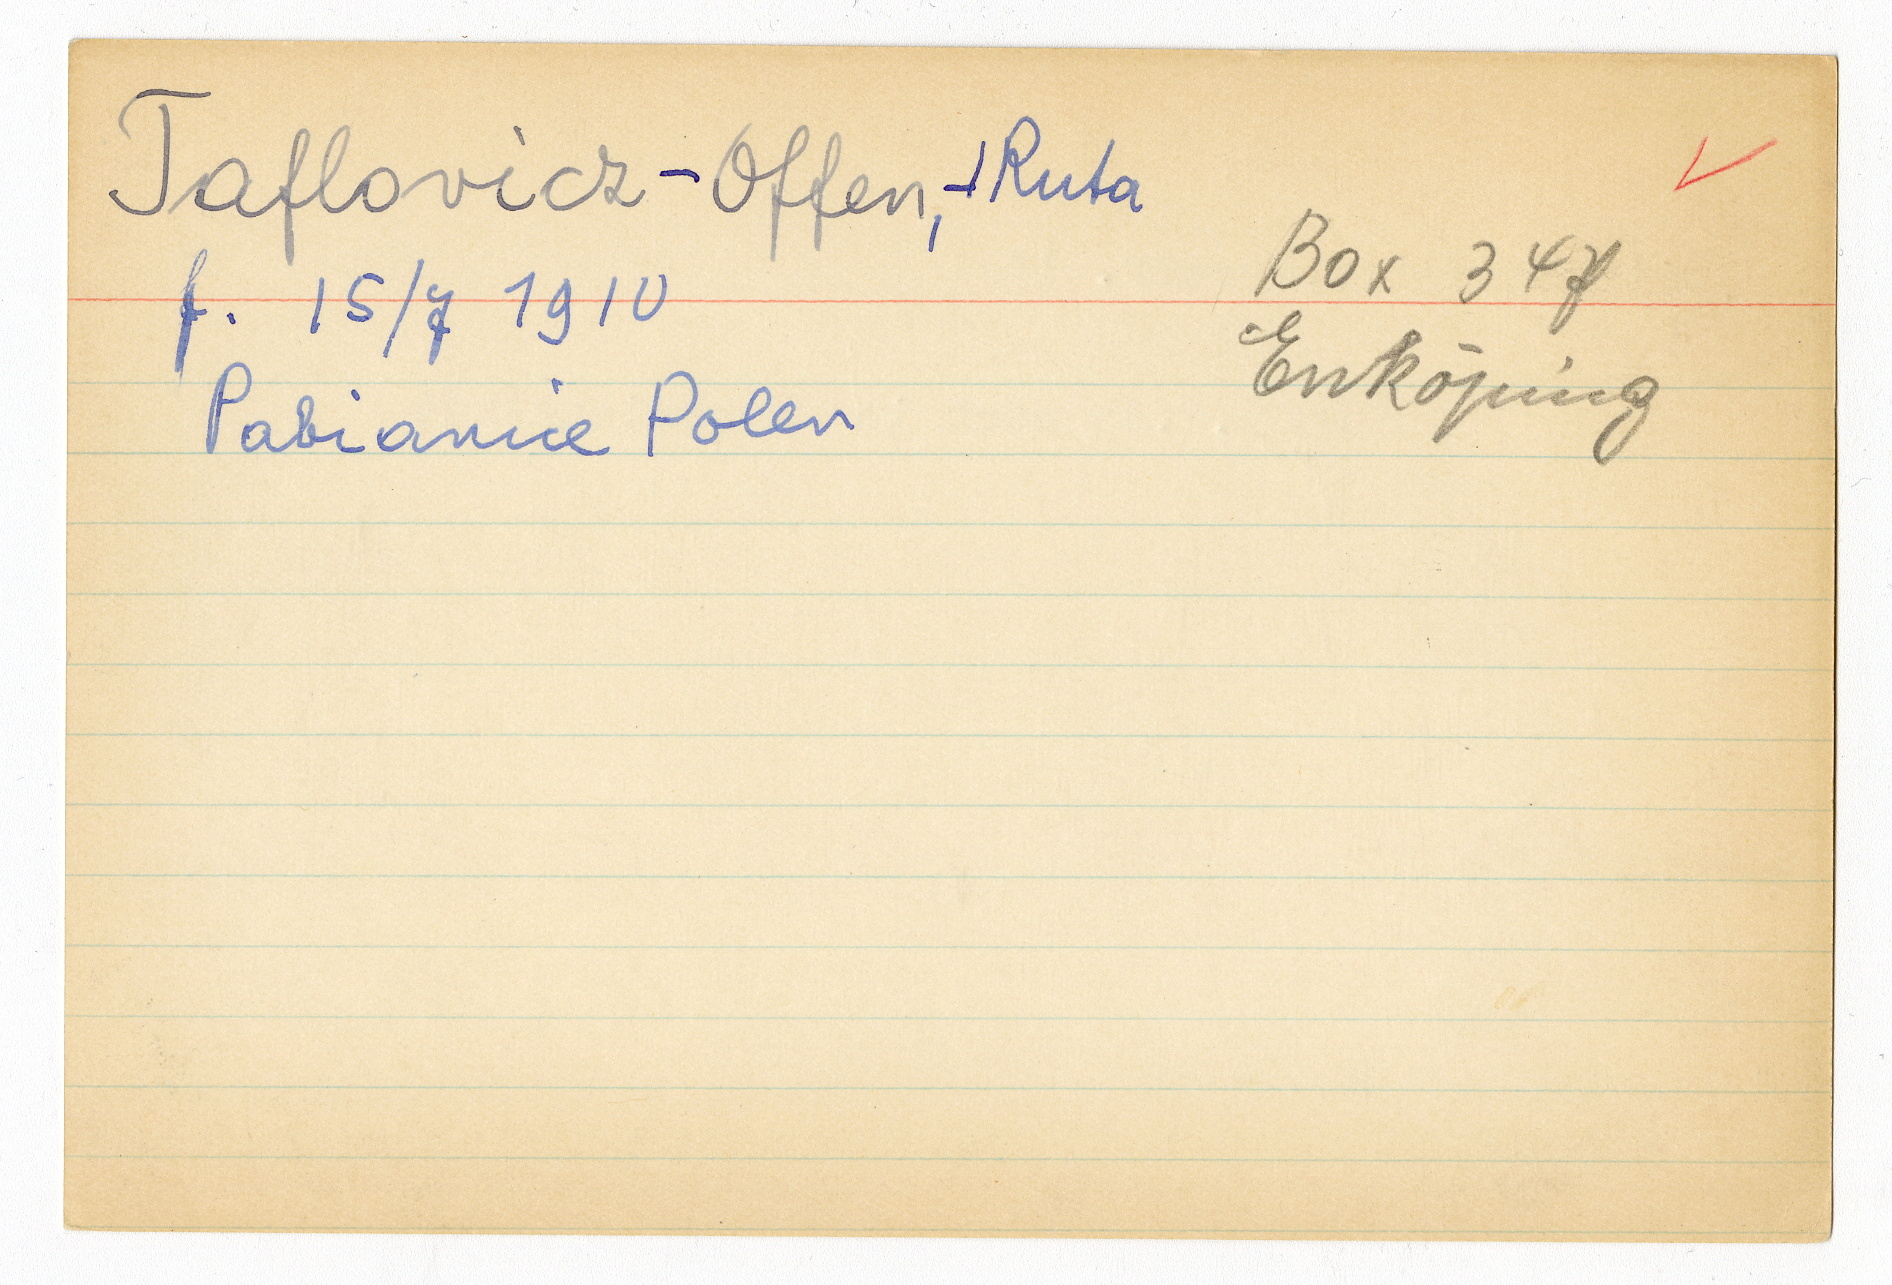 Taflovicz-Offen, Ruta
f. 15/7 1910
Pabianice Polen
Box 347
Enköping